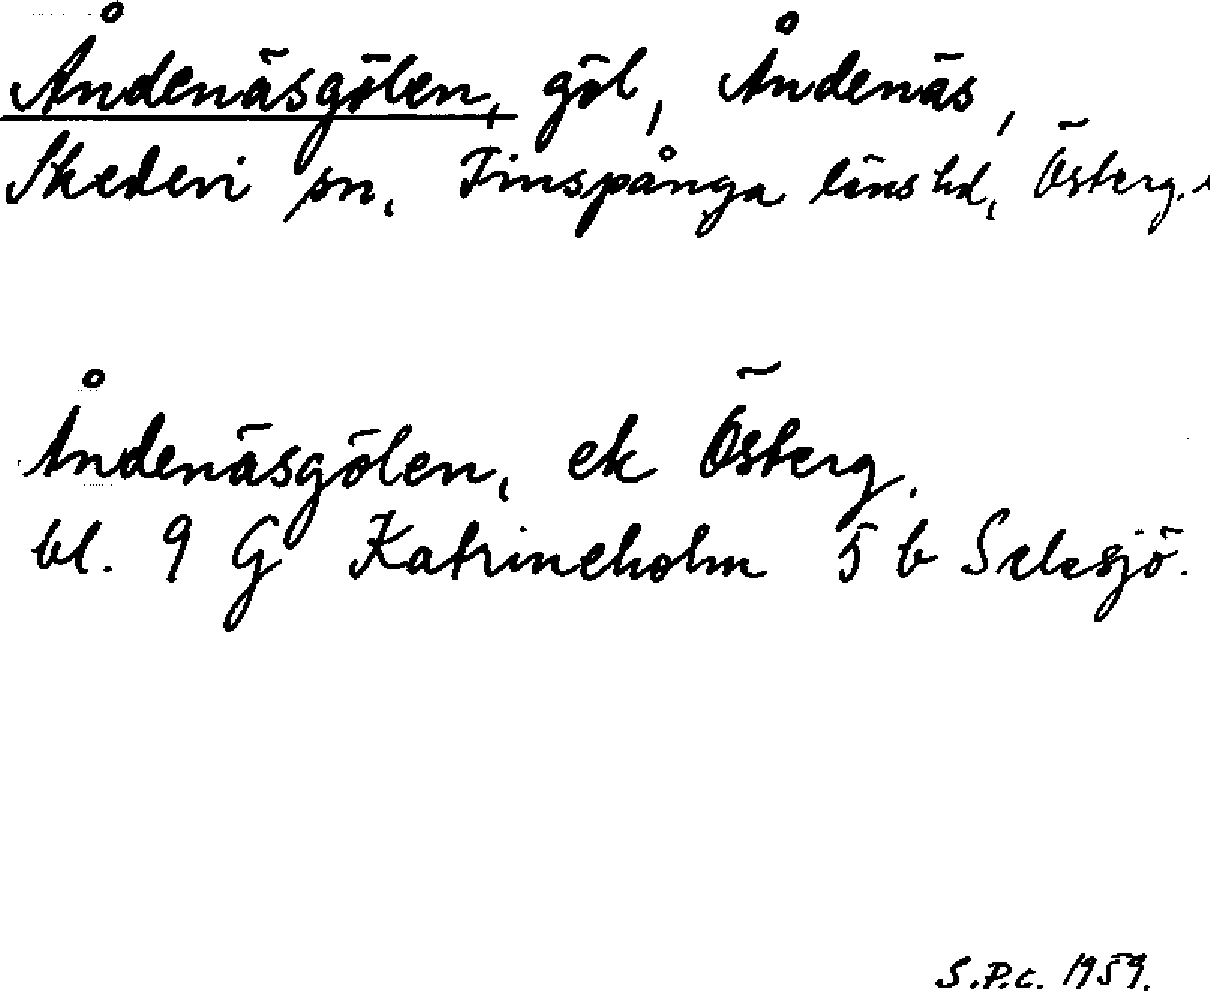 Åndenäsgölen, göl, Åndenäs,
Skedevi sn, Finspånga läns hd, Österg.
Åndenäsgölen, ek Österg.
bl. 9 G Katrineholm 5 b Selesjö.
S.P.C. 1959.